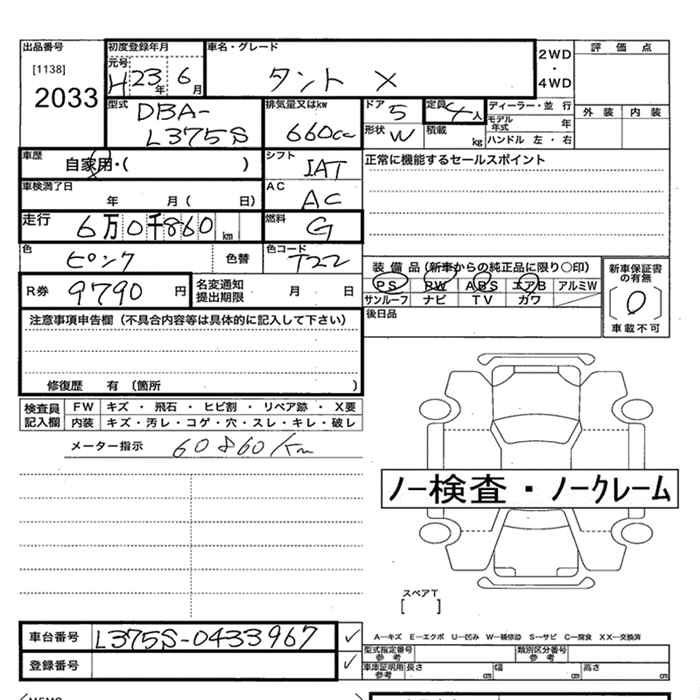 出品番号 初度登録年月 車名・グレード 2WD・4WD 評価点
[1138] 元号 H 23年 6月 タント X
2033 型式 DBA-L375S 排気量又はkw 660cc ドア 5 定員 4人 ディーラー・並行 外装 内装
形状 W 積載 kg モデル年式 年
ハンドル 左・右
車歴 自家用・( ) シフト IAT 正常に機能するセールスポイント
車検満了日 年 月( 日) AC AC
走行 6万0千860km 燃料 G
色 ピンク 色替 色コード T22
装備品(新車からの純正品に限り○印) 新車保証書の有無
R券 9790円 名変通知提出期限 月 日 PS PW ABS エアB アルミW [0]
サンルーフ ナビ TV カワ 車載不可
注意事項申告欄(不具合内容等は具体的に記入して下さい) 後日品
修復歴 有(箇所 )
検査員記入欄 FW キズ・飛石・ヒビ割・リペア跡・X要
内装 キズ・汚レ・コゲ・穴・スレ・キレ・破レ
メーター指示 60860km
ノー検査・ノークレーム
スペアT
[ ]
車台番号 L375S-0433967 ✓ A―キズ E―エクボ U―凹み W―補修跡 S―サビ C―腐食 XX―交換済
型式指定番号参考 類別区分番号参考
登録番号 ✓ 車庫証明用参考 長さ cm 幅 cm 高さ cm